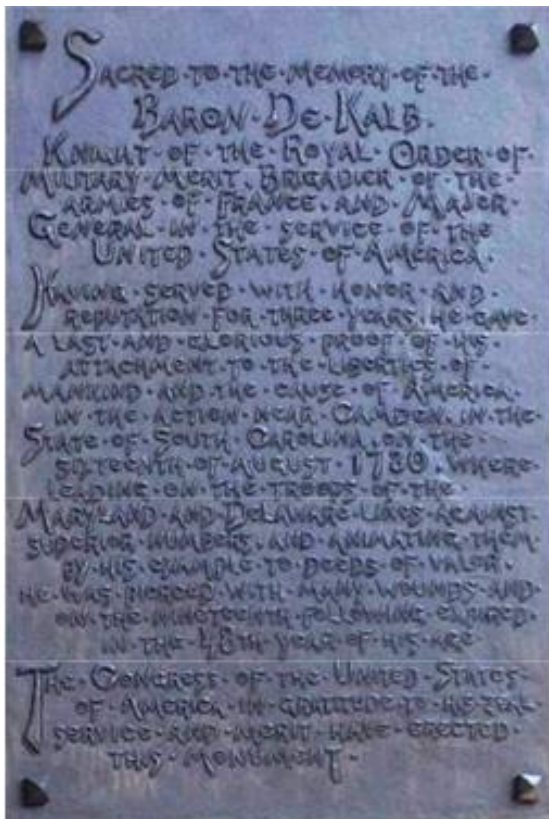 SACRED·TO·THE·MEMORY·OF·THE·
BARON·DE·KALB.
KNIGHT·OF·THE·ROYAL·ORDER·OF·
MILITARY·MERIT. BRIGADIER·OF·THE·
ARMIES·OF·FRANCE. AND·MAJOR·
GENERAL·IN·THE·SERVICE·OF·THE
UNITED·STATES·OF·AMERICA.
HAVING·SERVED·WITH·HONOR·AND·
REPUTATION·FOR·THREE·YEARS. HE·GAVE·
A·LAST·AND·GLORIOUS·PROOF·OF·HIS·
ATTACHMENT·TO·THE·LIBERTIES·OF·
MANKIND·AND·THE·CAUSE·OF·AMERICA.
IN·THE·ACTION·NEAR·CAMDEN. IN·THE·
STATE·OF·SOUTH·CAROLINA. ON·THE·
SIXTEENTH·OF·AUGUST·1780. WHERE·
LEADING·ON·THE·TROOPS·OF·THE·
MARYLAND·AND·DELAWARE·LINES·AGAINST·
SUPERIOR·NUMBERS. AND·ANIMATING·THEM·
BY·HIS·EXAMPLE·TO·DEEDS·OF·VALOR.
HE·WAS·PIERCED·WITH·MANY·WOUNDS·AND·
ON·THE·NINETEENTH·FOLLOWING·EXPIRED·
IN·THE·48TH·YEAR·OF·HIS·AGE
THE·CONGRESS·OF·THE·UNITED·STATES·
OF·AMERICA·IN·GRATITUDE·TO·HIS·ZEAL·
SERVICE·AND·MERIT·HAVE·ERECTED·
THIS·MONUMENT·